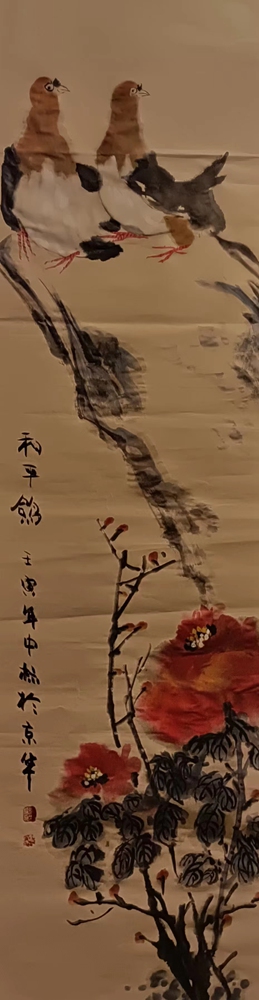 和平鸽
壬寅年中秋於京华